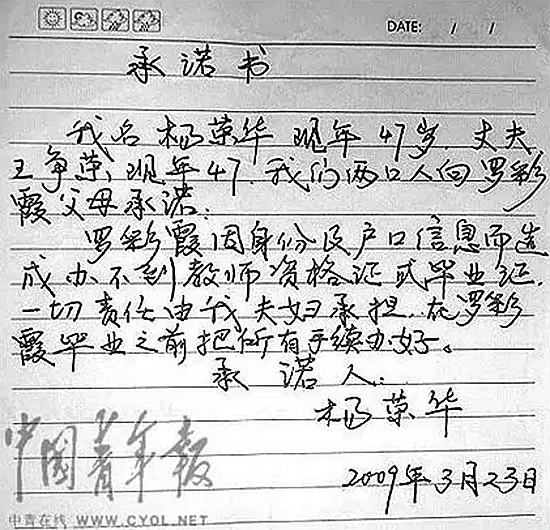 DATE: / /
承诺书
我名杨荣华 现年47岁.丈夫
王争荣.现年47.我们两口人向罗彩
霞父母承诺:
罗彩霞因身份及户口信息而造
成办不到教师资格证或毕业证.
一切责任由我夫妇承担.在罗彩
霞毕业之前把所有手续办好。
承诺人:
杨荣华
2009年3月23日
中国青年报
中青在线 WWW.CYOL.NET